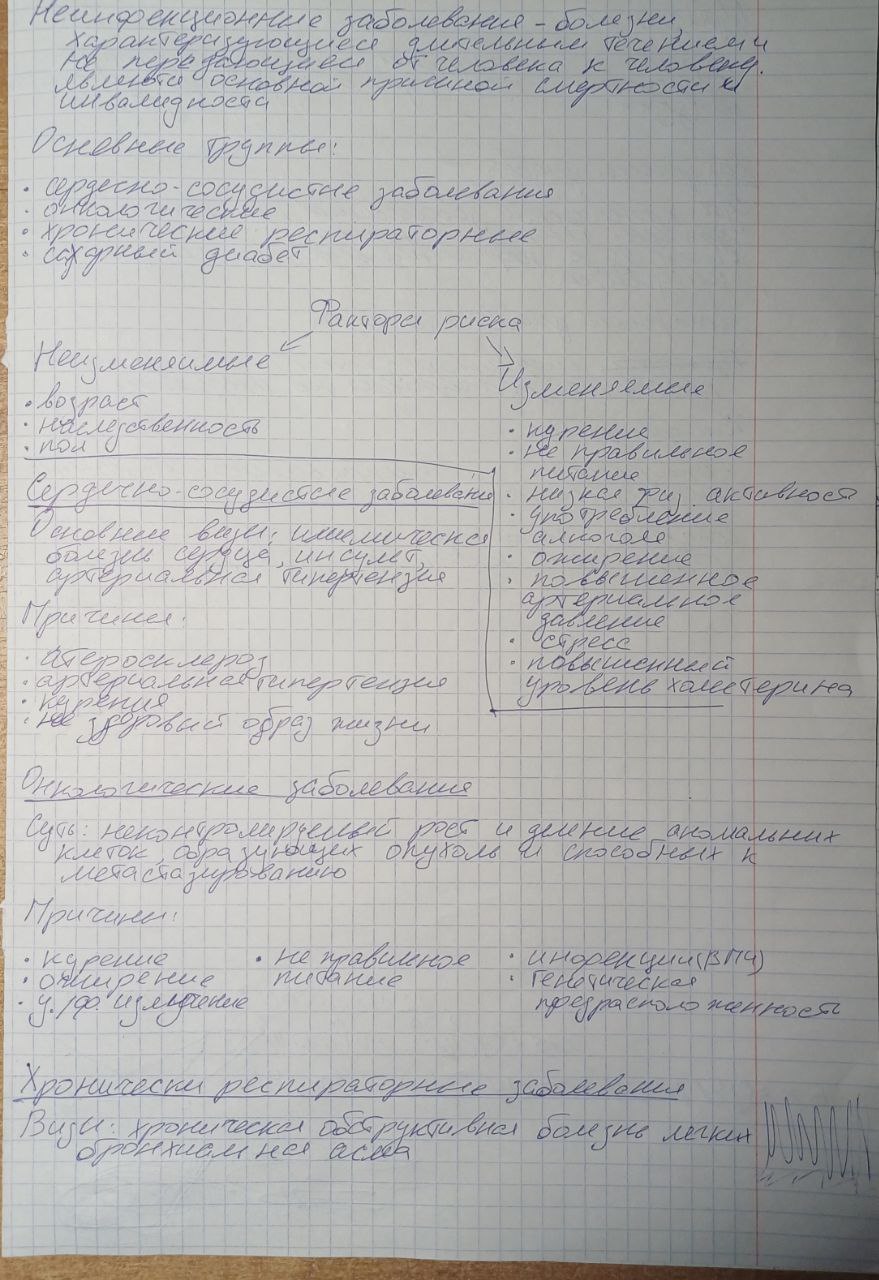 Неинфекционные заболевания - болезни,
характеризующиеся длительным течением и
не передающиеся от человека к человеку.
являются основной причиной смертности и
инвалидности
Основные группы:
• сердесно-сосудистые заболевания
• онкологические
• хронические респираторные
• сахарный диабет
Факторы риска
Неизменяимые
• возраст
• наследственность
• пол
Изменяемые
• курение
• не правильное
питание
• низкая физ. активность
• употребление
алкоголя
• ожирение
• повышенное
артериальное
давление
• стресс
• повышенный
уровень халестерина
Сердечно-сосудистые заболевания
Основные виды: ишемическая
болезнь сердца, инсульт,
артериальная гипертензия
Причины:
• атеросклероз
• артериальная гипертензия
• курения
• не здоровый образ жизни
Онкологические заболевания
Суть: неконтролируемый рост и деление аномальных
клеток, образующих опухоль и способных к
метастазированию
Причины:
• курение
• ожирение
• у./ф. излучение
• не правильное
питание
• инфекции (ВПЧ)
• генетическая
предрасположенность
Хронически респираторные заболевания
Виды: хроническая обструктивная болезнь легких
бронхиальная асма